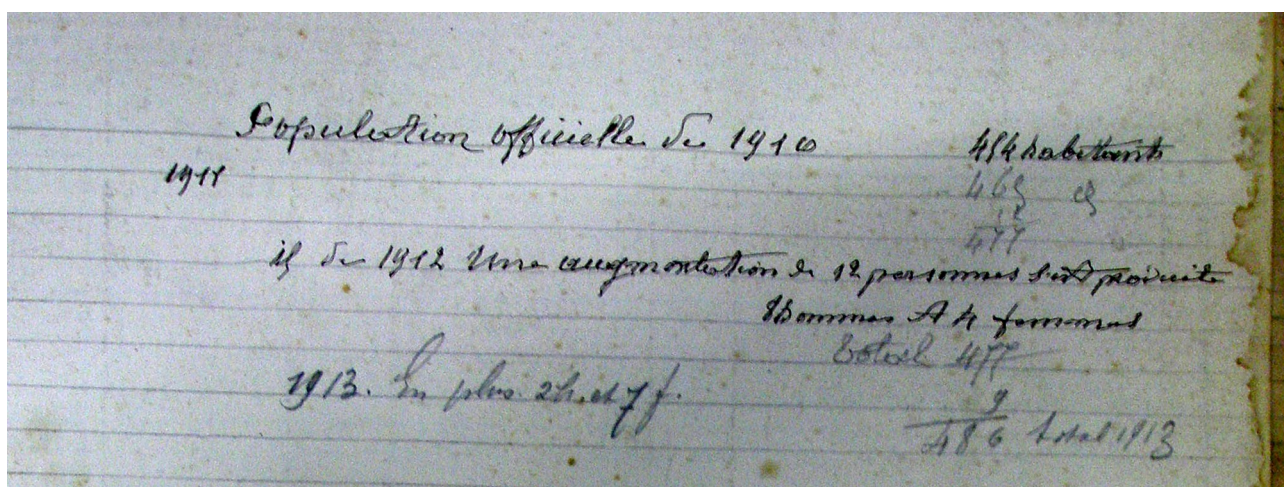 Population officielle de 1910 454 habitants
1911 465 id
12
477
id de 1912 Une augmentation de 12 personnes s'est produite
8 hommes et 4 femmes
Total 477
1913. En plus 2 h. et 7 f. 9
486 total 1913